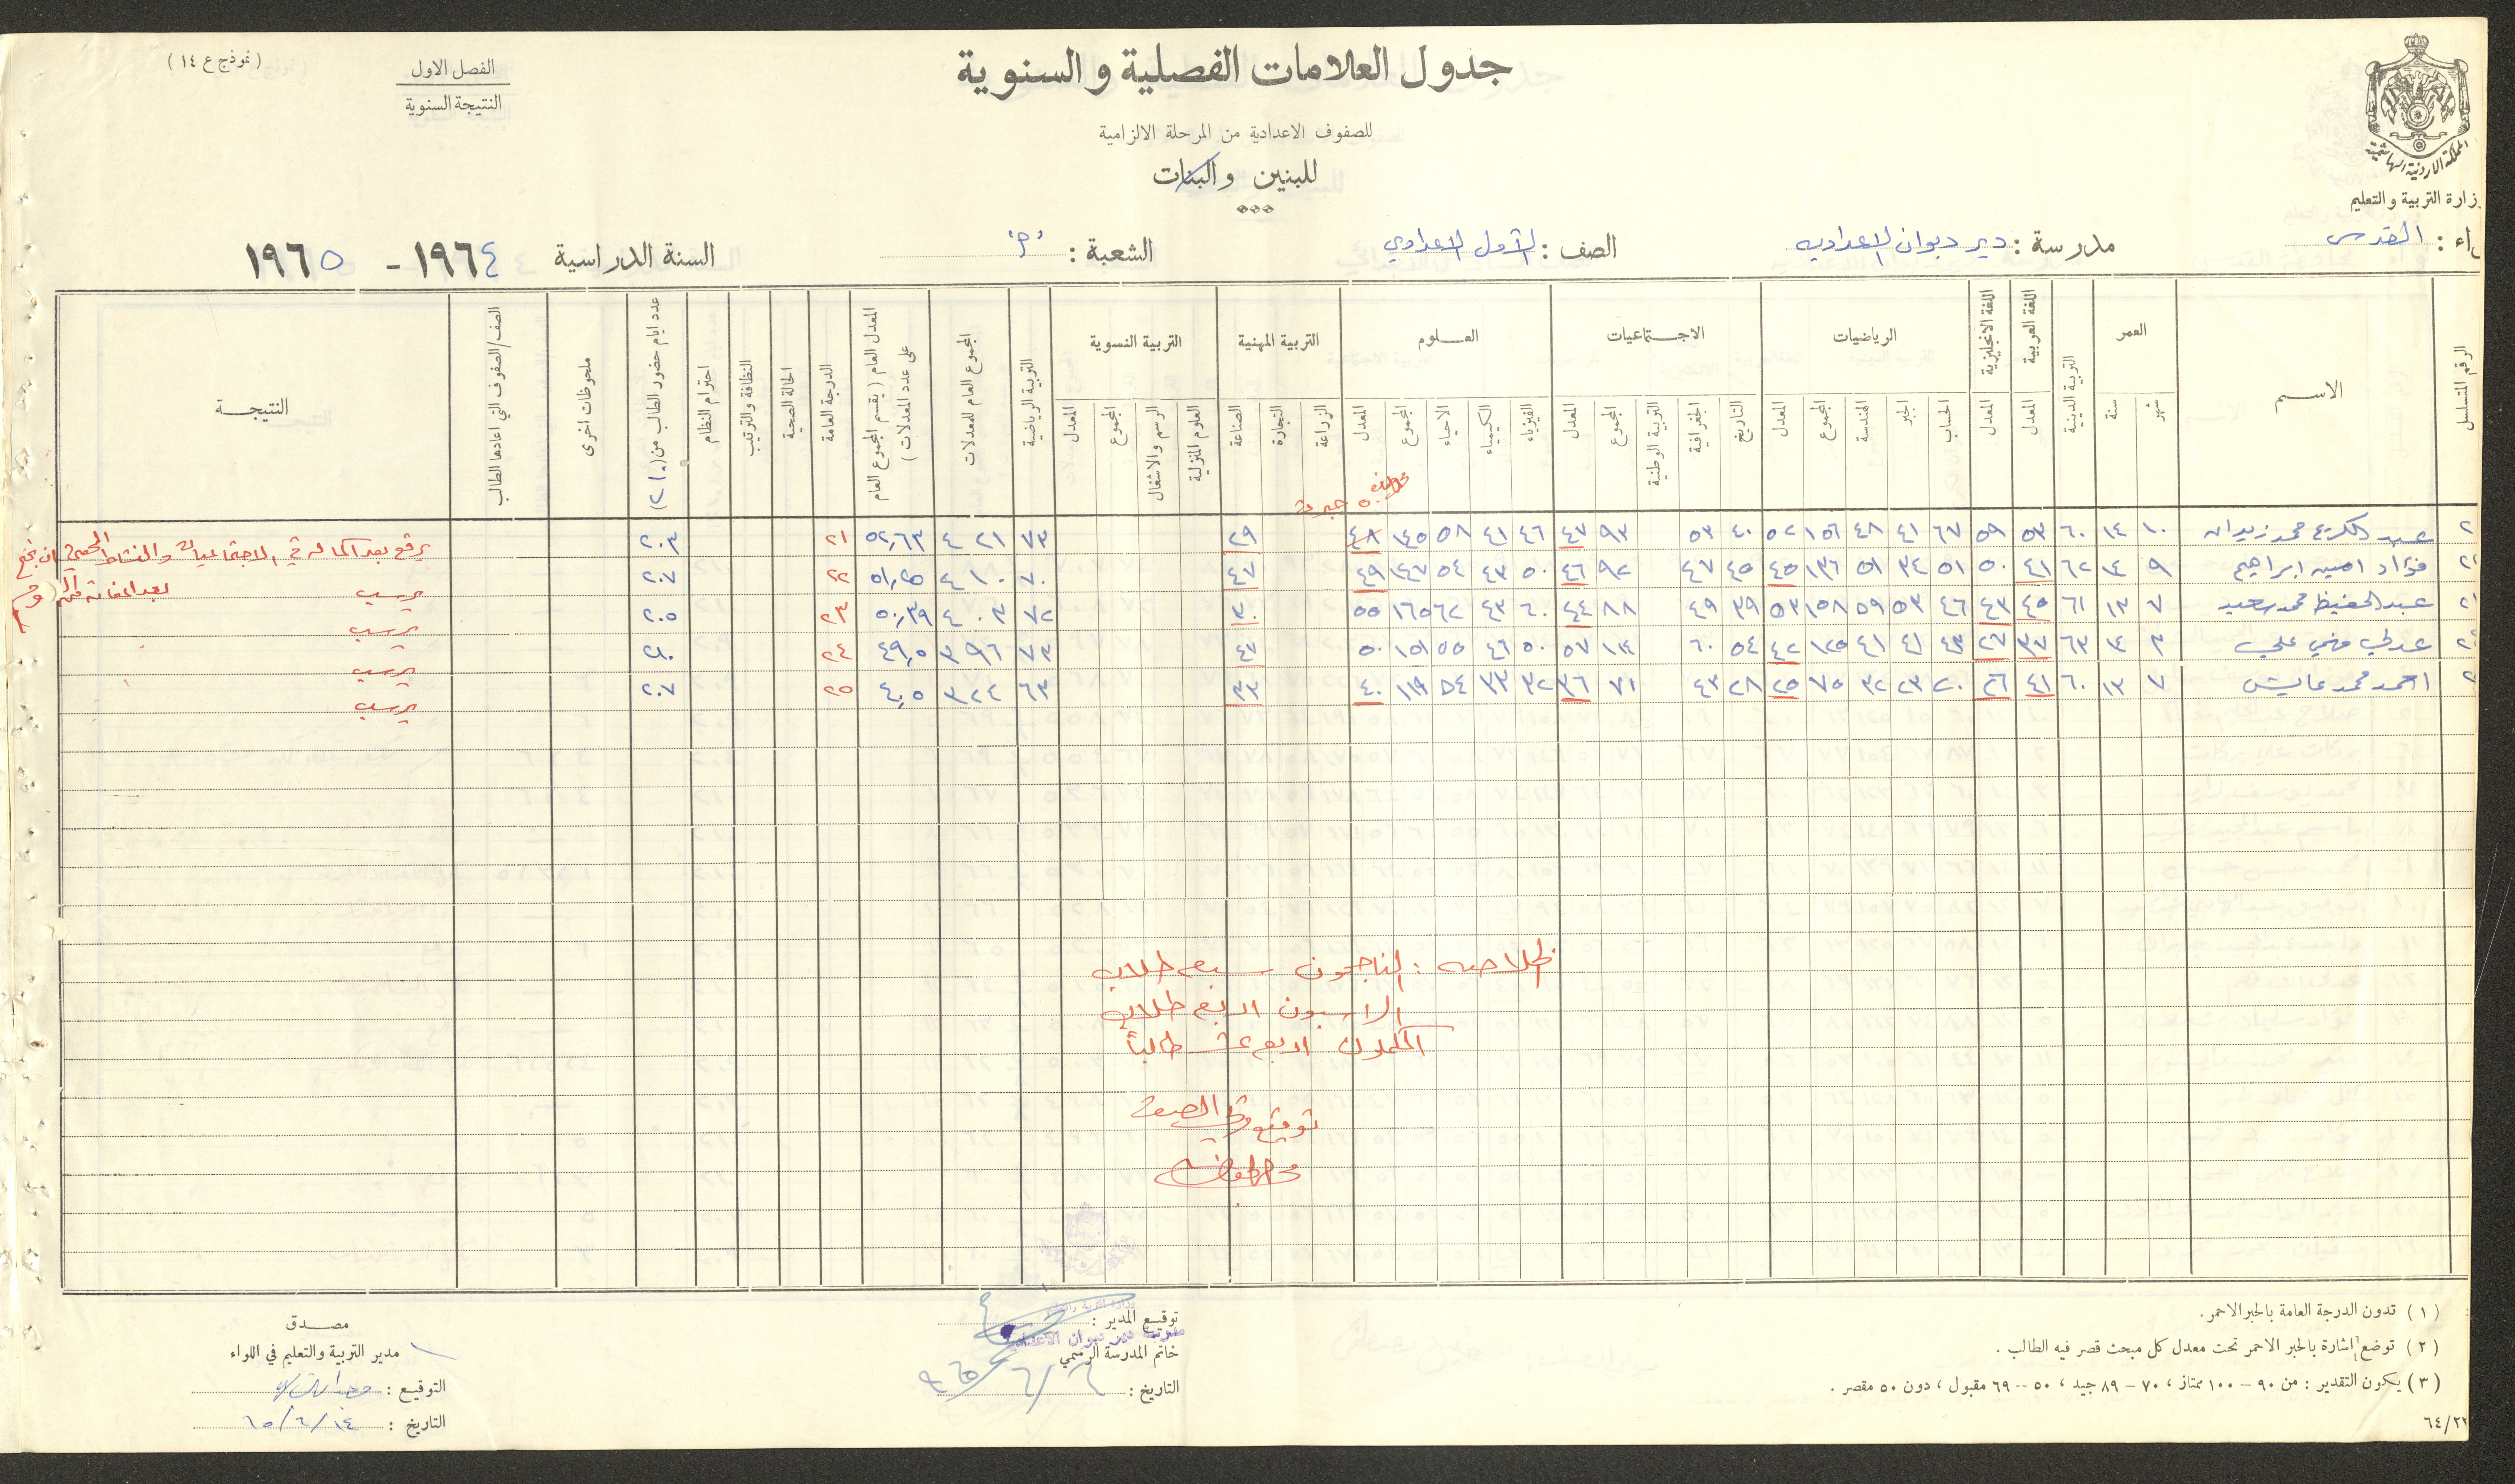 (نموذج ع ١٤)
الفصل الاول
النتيجة السنوية
جدول العلامات الفصلية والسنوية
للصفوف الاعدادية من المرحلة الالزامية
للبنين والبنات
المملكة الاردنية الهاشمية
زارة التربية والتعليم
اء : القدس
مدرسة : دير ديوان الاعدادية
الصف : الاول الاعدادي
الشعبة : "أ"
السنة الدراسية ١٩٦٤ - ١٩٦٥
الرقم المتسلسل
الاســم
العمر
شهر
سنة
التربية الدينية
اللغة العربية
المعدل
اللغة الانجليزية
المعدل
الرياضيات
الحساب
الجبر
الهندسة
المجموع
المعدل
الاجـتـمـاعيات
التاريخ
الجغرافية
التربية الوطنية
المجموع
المعدل
العـــلوم
الفيزياء
الكيمياء
الاحياء
المجموع
المعدل
التربية المهنية
الزراعة
التجارة
الصناعة
التربية النسوية
العلوم المنزلية
الرسم والاشغال
المجموع
المعدل
التربية الرياضية
المجموع العام للمعدلات
المعدل العام (يقسم المجموع العام على عدد المعدلات)
الدرجة العامة
الحالة الصحية
النظافة والترتيب
احترام النظام
عدد ايام حضور الطالب من (٢١٠)
ملحوظات اخرى
الصف/الصفوف التي اعادها الطالب
النتيجــة
٢ عبد الكريم محمد زيدان ١٠ ١٤ ٦٠ ٥٣ ٥٩ ٦٧ ٤١ ٤٨ ١٥٦ ٥٢ ٤٠ ٥٣ ٩٣ ٤٧ ٤٦ ٤١ ٥٨ ١٤٥ ٤٨ ٢٩ ٧٣ ٤٢١ ٥٢,٦٣ ٢١ ٢٠٣ يرفع بعد اكماله في الاجتماعيات والنشاط المهني ان نجح
٢٢ فؤاد امين ابراهيم ٩ ١٤ ٦٢ ٤١ ٥٠ ٥١ ٣٤ ٥١ ١٣٦ ٤٥ ٤٥ ٤٧ ٩٢ ٤٦ ٥٠ ٤٣ ٥٤ ١٤٧ ٤٩ ٤٧ ٧٠ ٤١٠ ٥١,٢٥ ٢٢ ٢٠٧ يرسب
٢ عبد الحفيظ محمد سعيد ٧ ١٣ ٦١ ٤٥ ٤٣ ٤٦ ٥٣ ٥٩ ١٥٨ ٥٣ ٣٩ ٤٩ ٨٨ ٤٤ ٦٠ ٤٣ ٦٢ ١٦٥ ٥٥ ٣٠ ٧٢ ٤٠٣ ٥٠,٣٩ ٢٣ ٢٠٥ يرسب
٢ عدلي فهمي علي ٣ ١٤ ٦٣ ٣٧ ٢٧ ٤٣ ٤١ ٤١ ١٢٥ ٤٢ ٥٤ ٦٠ ١١٤ ٥٧ ٥٠ ٤٦ ٥٥ ١٥١ ٥٠ ٤٧ ٧٣ ٣٩٦ ٤٩,٥ ٢٤ ٢١٠ يرسب
٢ احمد محمد عايش ٧ ١٣ ٦٠ ٤١ ٢٦ ٢٠ ٢٣ ٣٢ ٧٥ ٢٥ ٢٨ ٤٣ ٧١ ٣٦ ٣٢ ٣٣ ٥٤ ١١٩ ٤٠ ٣٣ ٦٣ ٣٢٤ ٤٠,٥ ٢٥ ٢٠٧ يرسب
الخلاصة : الناجحون سبع طلاب
الراسبون اربع طلاب
المكملون اربع عشر طالباً
توقيع مربي الصف
(١) تدون الدرجة العامة بالحبر الاحمر.
(٢) توضع اشارة بالحبر الاحمر تحت معدل كل مبحث قصر فيه الطالب.
(٣) يكون التقدير : من ٩٠ - ١٠٠ ممتاز ، ٧٠ - ٨٩ جيد ، ٥٠ -- ٦٩ مقبول ، دون ٥٠ مقصر.
٦٤/٢٢
توقيع المدير :
مدرسة دير ديوان الاعدادية
خاتم المدرسة الرسمي
التاريخ : ٦ / ٦ / ٩٦٥
مصــدق
مدير التربية والتعليم في اللواء
التوقيع :
التاريخ : ١٤ / ٦ / ٦٥